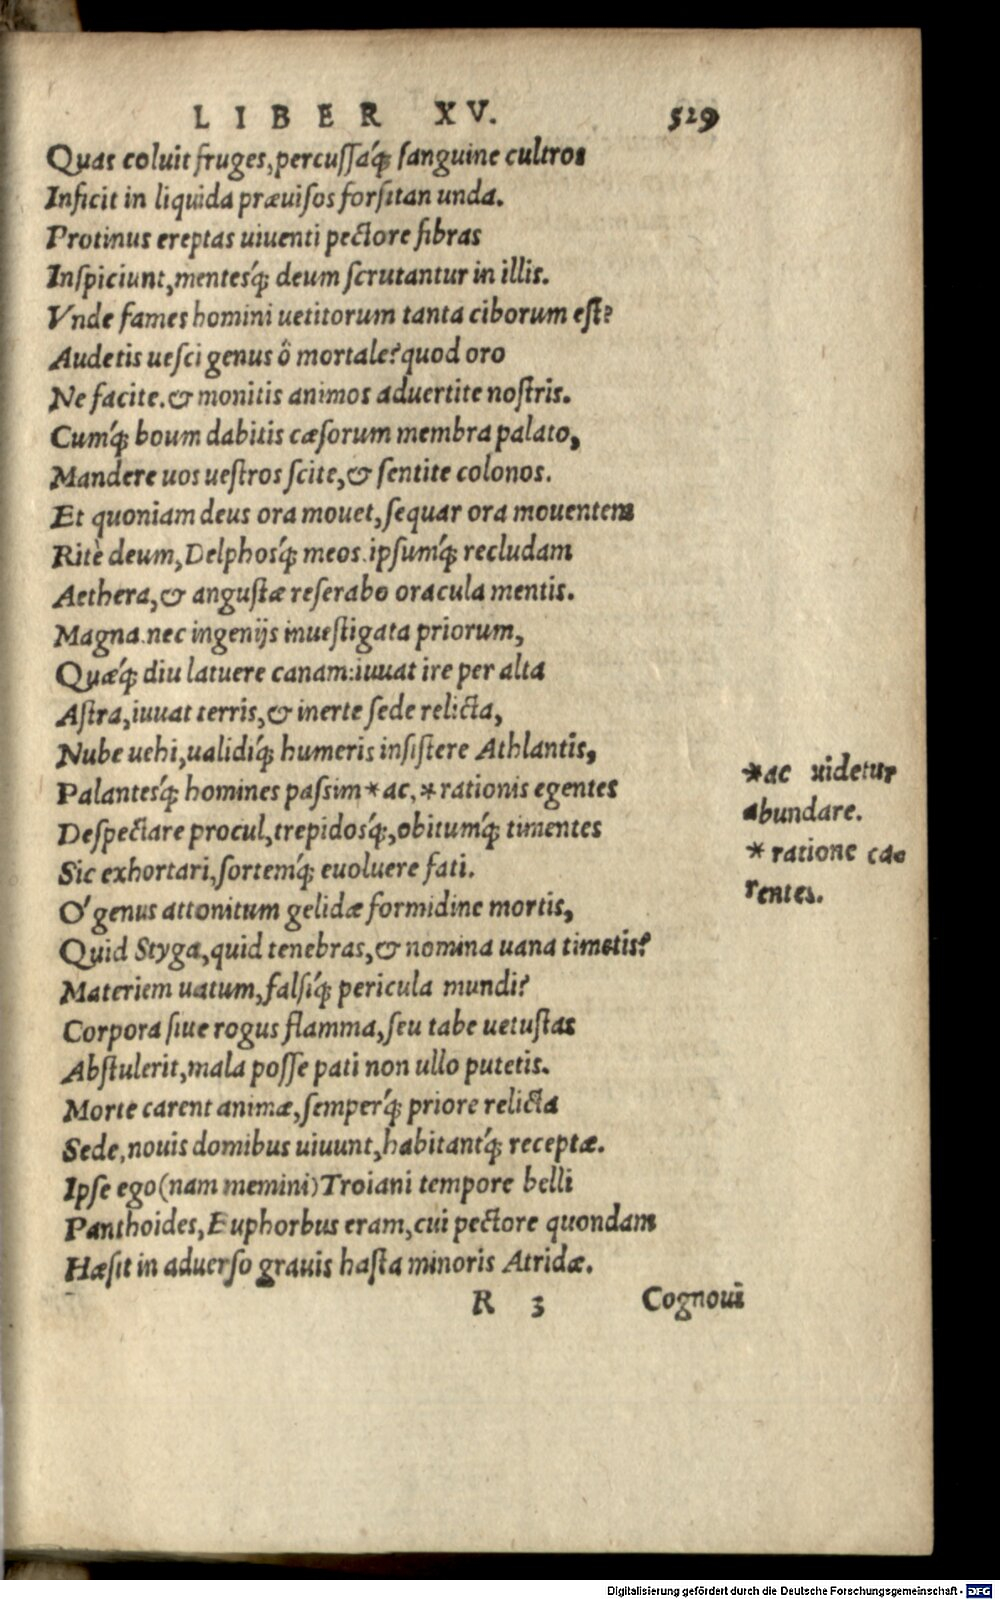 LIBER XV. 529
Quas coluit fruges, percuſſaq́; ſanguine cultros
Inficit in liquida præuiſos forſitan unda.
Protinus ereptas uiuenti pectore fibras
Inſpiciunt, menteſq́; deum ſcrutantur in illis.
Vnde fames homini uetitorum tanta ciborum eſt?
Audetis ueſci genus ô mortale? quod oro
Ne facite. & monitis animos aduertite noſtris.
Cumq́; boum dabitis cæſorum membra palato,
Mandere uos ueſtros ſcite, & ſentite colonos.
Et quoniam deus ora mouet, ſequar ora mouentem
Ritè deum, Delphosq́; meos. ipſumq́; recludam
Aethera, & anguſtæ reſerabo oracula mentis.
Magna. nec ingenijs inueſtigata priorum,
Quæq́; diu latuere canam: iuuat ire per alta
Aſtra, iuuat terris, & inerte ſede relicta,
Nube uehi, ualidiq́; humeris inſiſtere Athlantis,
Palantesq́; homines paſsim * ac, * rationis egentes
Deſpectare procul, trepidosq́;, obitumq́; timentes
Sic exhortari, ſortemq́; euoluere fati.
O' genus attonitum gelidæ formidine mortis,
Quid Styga, quid tenebras, & nomina uana timetis?
Materiem uatum, falſiq́; pericula mundi?
Corpora ſiue rogus flamma, ſeu tabe uetuſtas
Abſtulerit, mala poſſe pati non ullo putetis.
Morte carent animæ, ſemperq́; priore relicta
Sede, nouis domibus uiuunt, habitantq́; receptæ.
Ipſe ego (nam memini) Troiani tempore belli
Panthoides, Euphorbus eram, cui pectore quondam
Hæſit in aduerſo grauis haſta minoris Atridæ.
R 3 Cognoui
*ac uidetur
abundare.
* ratione ca-
rentes.
Digitalisierung gefördert durch die Deutsche Forschungsgemeinschaft - DFG